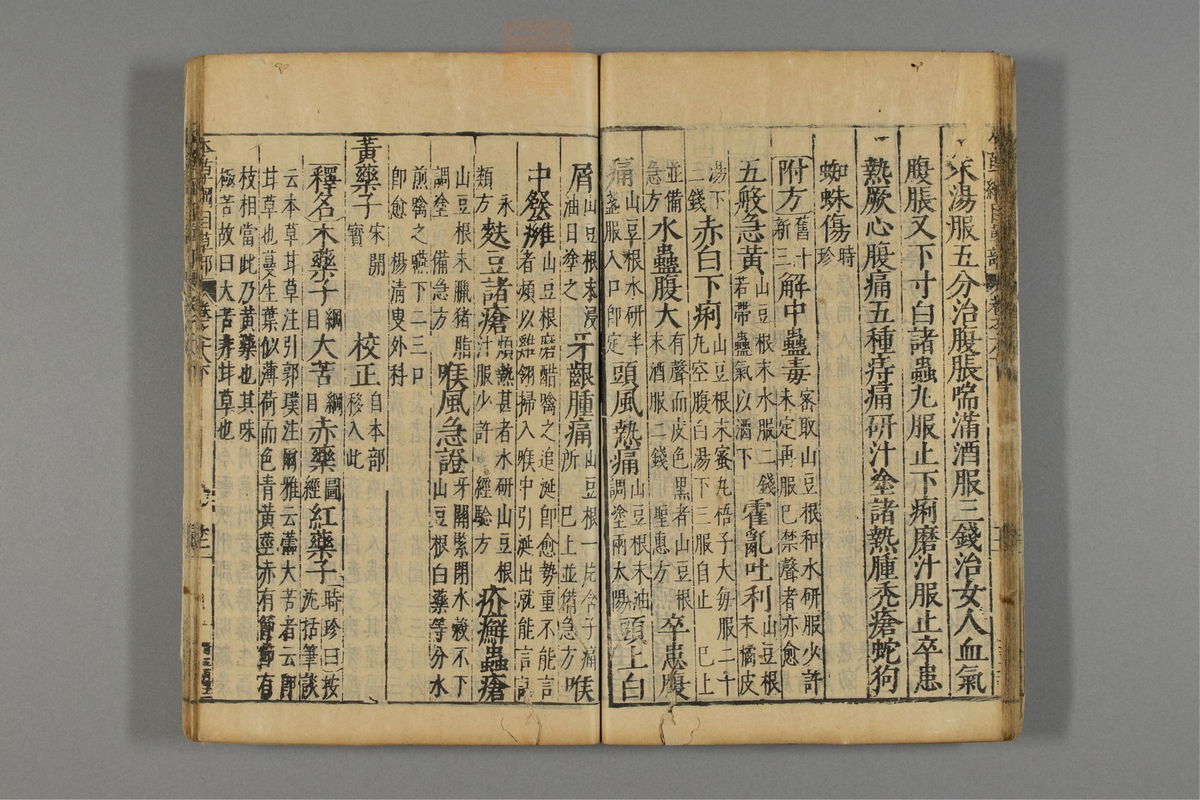 末湯服五分治腹脹喘滿酒服三錢治女人血氣
腹脹又下寸白諸蟲丸服止下痢磨汁服止卒患
熱厥心腹痛五種痔痛研汁塗諸熱腫禿瘡蛇狗
蜘蛛傷時珍
附方舊十新三解中蠱毒審取山豆根和水研服少許未定再服已禁聲者亦愈
五般急黃山豆根末水服二錢若帶蠱氣以酒下霍亂吐利山豆根末橘皮
湯下三錢赤白下痢山豆根末蜜丸梧子大每服二十丸空腹白湯下三服自止已上
並備急方水蠱腹大有聲而皮色黑者山豆根末酒服二錢聖惠方卒患腹
痛山豆根水研半盞服入口即定頭風熱痛山豆根末油調塗兩太陽頭上白
屑山豆根末浸油日塗之牙齦腫痛山豆根一片含于痛所已上並備急方喉
中發癰山豆根磨醋噙之追涎即愈勢重不能言者頻以雞翎掃入喉中引涎出就能言語
永類方麩豆諸瘡煩熱甚者水研山豆根汁服少許經驗方疥癬蟲瘡
山豆根末臘猪脂調塗備急方喉風急證牙關緊閉水穀不下山豆根白藥等分水
煎噙之嚥下二三口即愈楊清叟外科
黃藥子宋開寶校正自本部移入此
釋名木藥子綱目大苦綱目赤藥圖經紅藥子時珍曰按沈括筆談
云本草甘草注引郭璞注爾雅云蘦大苦者云即
甘草也蔓生葉似薄荷而色青黃莖赤有節節有
枝相當此乃黃藥也其味
極苦故曰大苦非甘草也